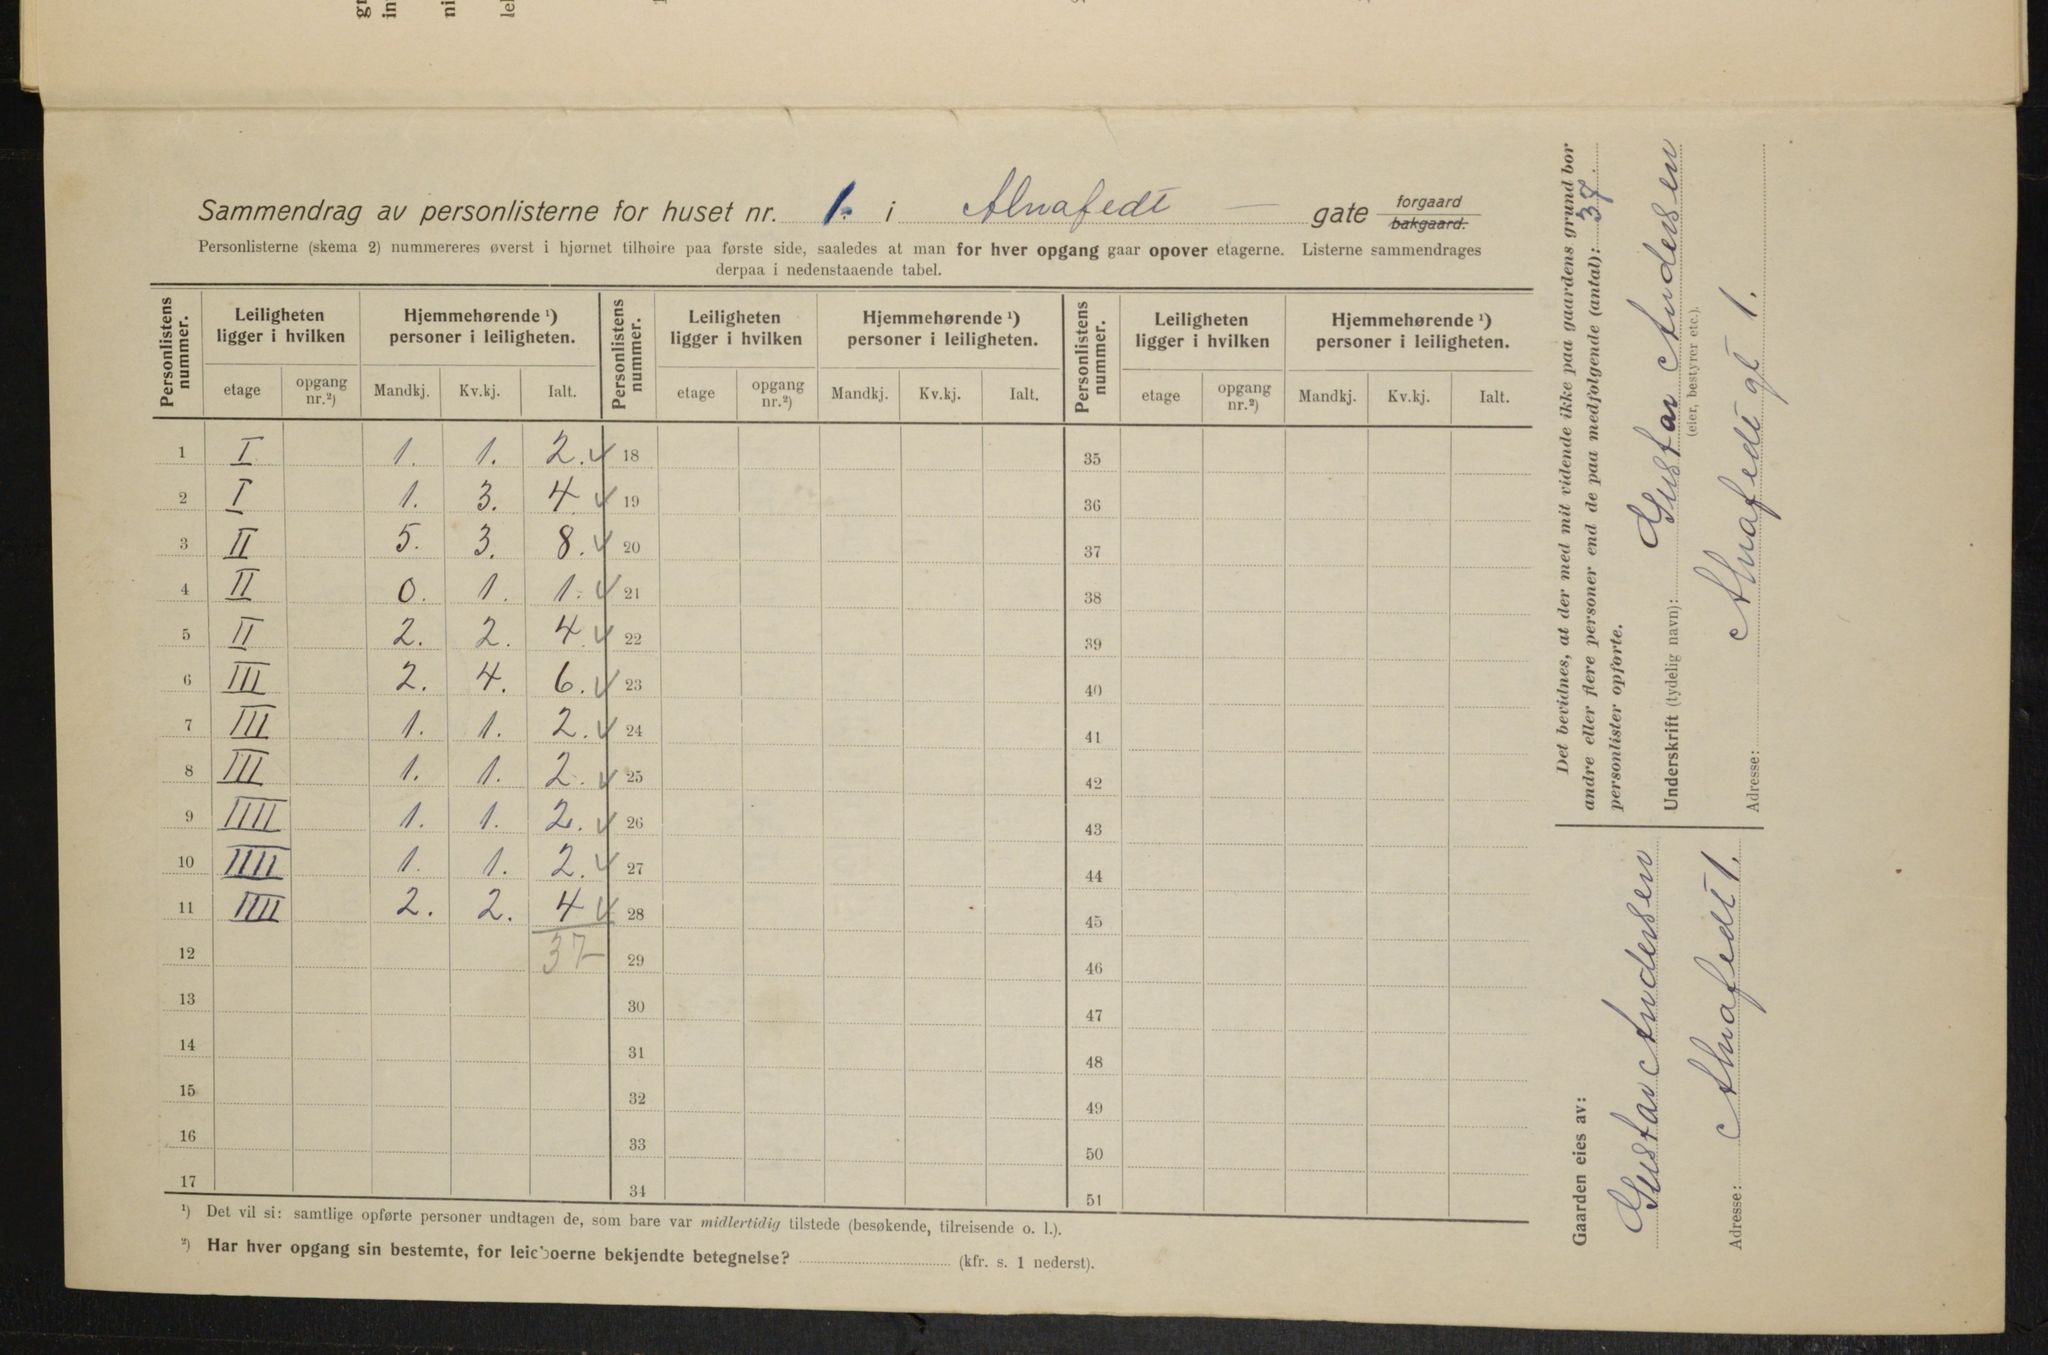 Sammendrag av personlisterne for huset nr. 1. i Alnafedt gate forgaard bakgaard.
Personlisterne (skema 2) nummereres øverst i hjørnet tilhøire paa første side, saaledes at man for hver opgang gaar opover etagerne. Listerne sammendrages
derpaa i nedenstaaende tabel.
Personlistens nummer. Leiligheten ligger i hvilken Hjemmehørende ¹) personer i leiligheten. Personlistens nummer. Leiligheten ligger i hvilken Hjemmehørende ¹) personer i leiligheten. Personlistens nummer. Leiligheten ligger i hvilken Hjemmehørende ¹) personer i leiligheten.
etage opgang nr.²) Mandkj. Kv.kj. Ialt. etage opgang nr.²) Mandkj. Kv.kj. Ialt. etage opgang nr.²) Mandkj. Kv.kj. Ialt.
1 I 1. 1. 2. 18 35
2 I 1. 3. 4. 19 36
3 II 5. 3. 8. 20 37
4 II 0. 1. 1. 21 38
5 II 2. 2. 4. 22 39
6 III 2. 4. 6. 23 40
7 III 1. 1. 2. 24 41
8 III 1. 1. 2. 25 42
9 IIII 1. 1. 2. 26 43
10 IIII 1. 1. 2. 27 44
11 IIII 2. 2. 4 28 45
12 37 29 46
13 30 47
14 31 48
15 32 49
16 33 50
17 34 51
¹) Det vil si: samtlige opførte personer undtagen de, som bare var midlertidig tilstede (besøkende, tilreisende o. l.).
²) Har hver opgang sin bestemte, for leieboerne bekjendte betegnelse? (kfr. s. 1 nederst).
Det bevidnes, at der med mit vidende ikke paa gaardens grund bor
andre eller flere personer end de paa medfølgende (antal): 37.
personlister opførte.
Underskrift (tydelig navn): Gustav Andersen
(eier, bestyrer etc.).
Adresse: Alnafedt gt 1.
Gaarden eies av:
Gustav Andersen
Adresse: Alnafedt 1.